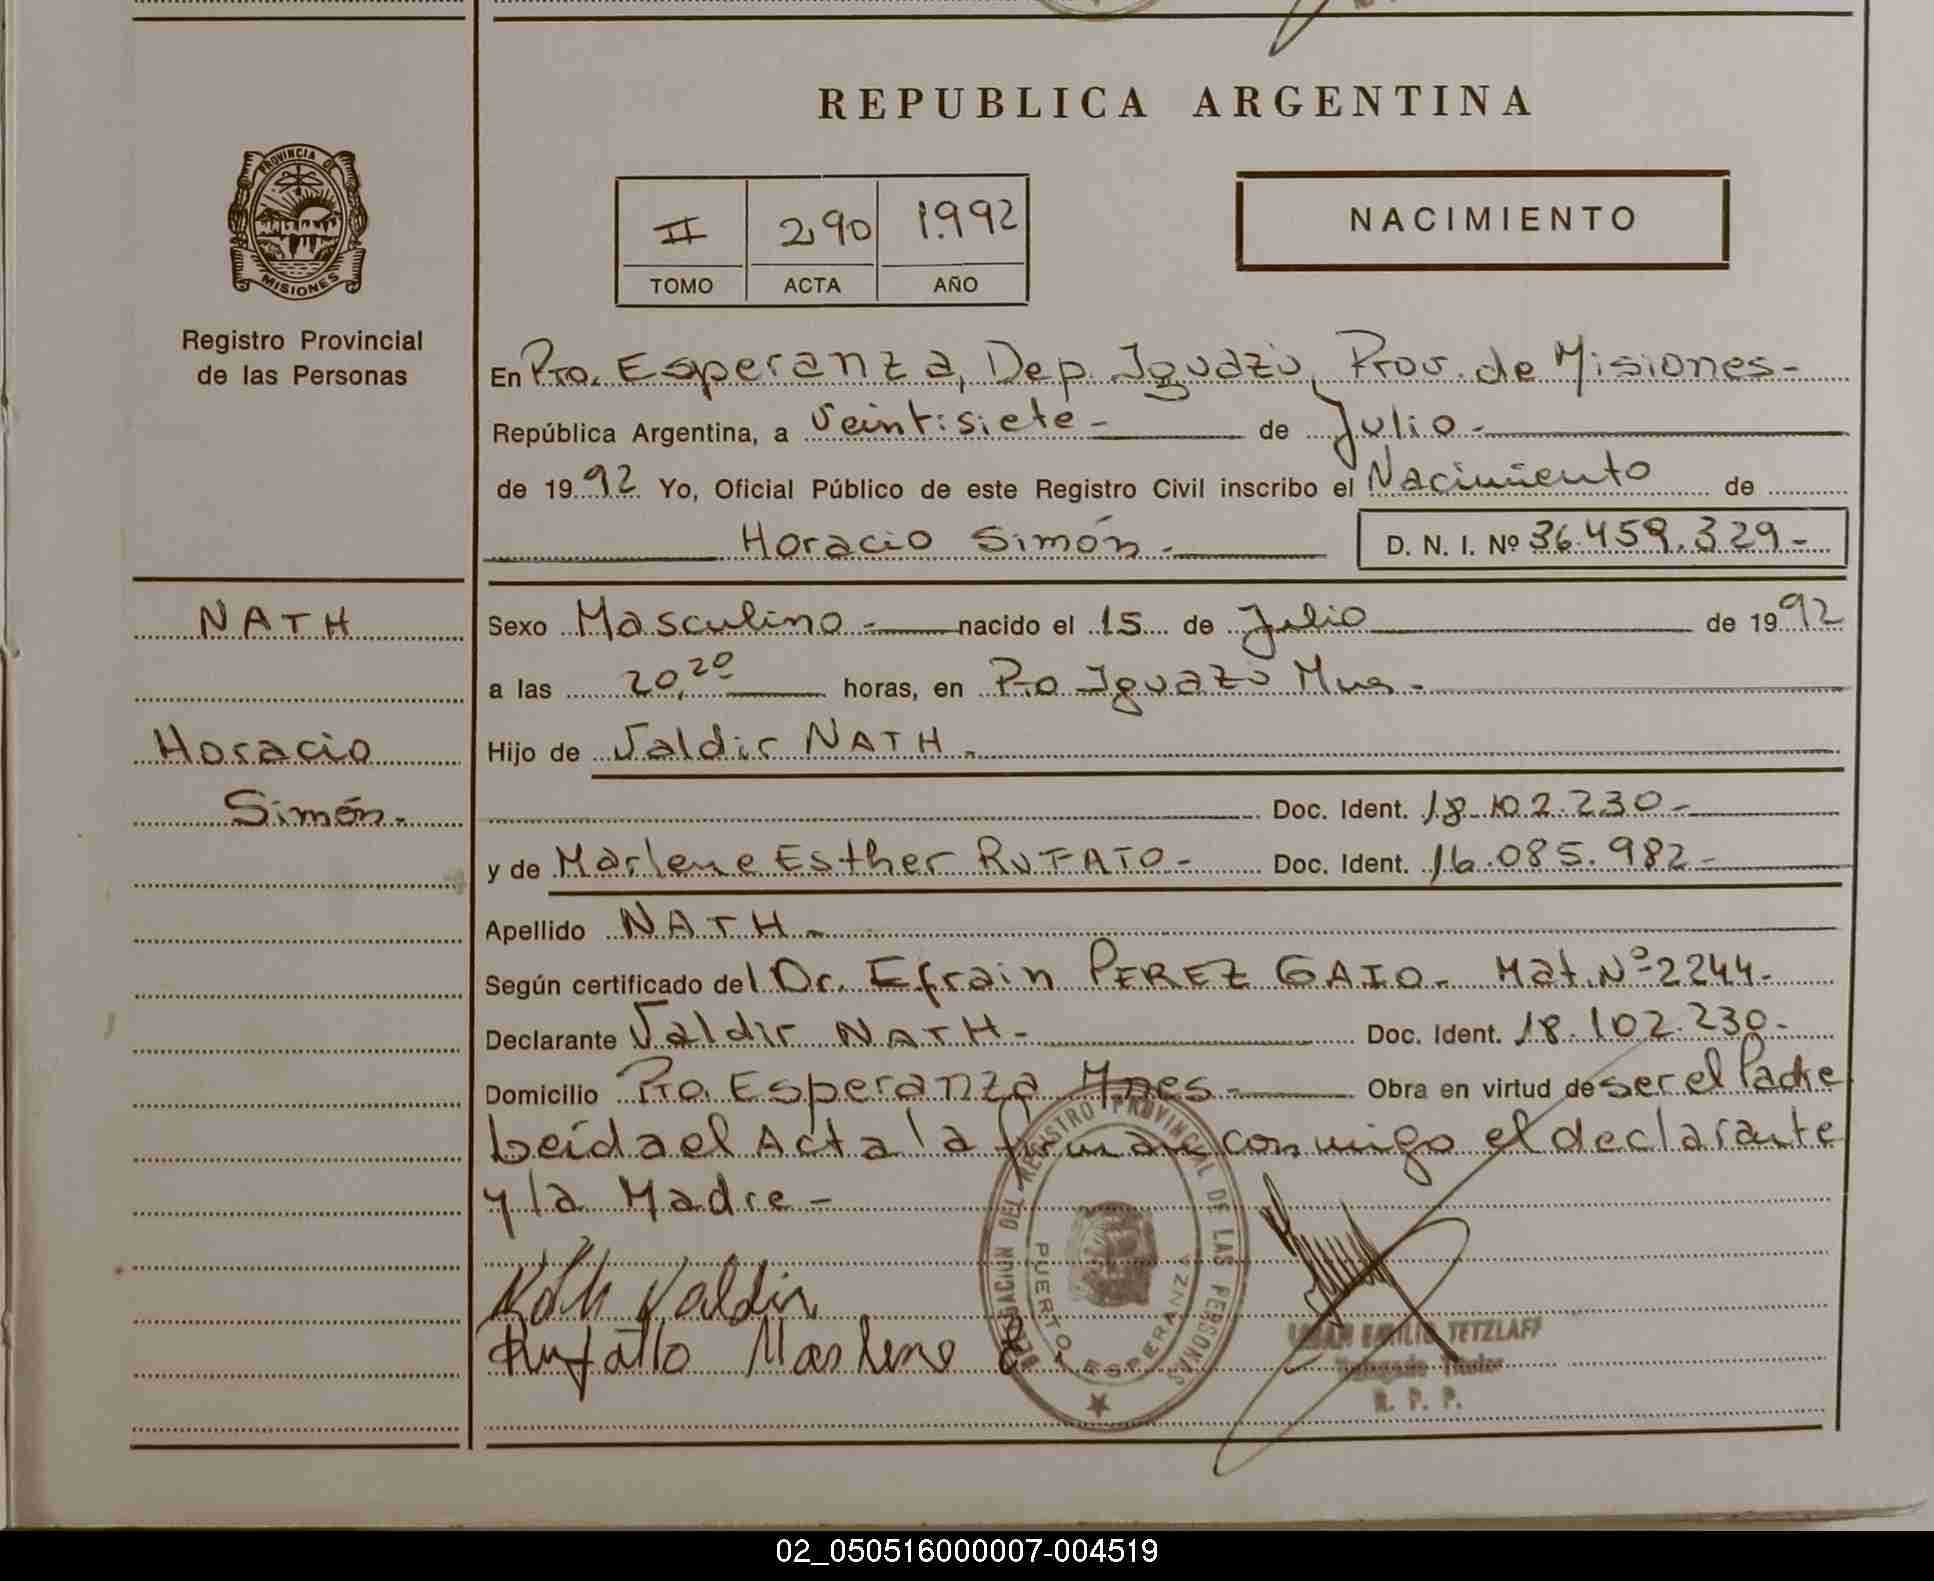 REPUBLICA ARGENTINA
PROVINCIA DE
MISIONES
Registro Provincial
de las Personas
II 290 1.992
TOMO ACTA AÑO
NACIMIENTO
En Pto. Esperanza, Dep. Iguazú, Prov. de Misiones-
República Argentina, a Veintisiete- de Julio-
de 1992 Yo, Oficial Público de este Registro Civil inscribo el Nacimiento de
Horacio Simón.- D. N. I. Nº 36.459.329-
NATH
Horacio
Simón.-
Sexo Masculino- nacido el 15 de Julio de 1992
a las 20,20 horas, en Pto Iguazú Mnes.
Hijo de Valdir NATH.
Doc. Ident. 18.102.230-
y de Marlene Esther RUFATO- Doc. Ident. 16.085.982-
Apellido NATH-
Según certificado del Dr. Efrain PEREZ GAIO- Mat. Nº 2244-
Declarante Valdir NATH- Doc. Ident. 18.102.230-
Domicilio Pto. Esperanza Mnes- Obra en virtud de ser el Padre
Leída el Acta la firman conmigo el declarante
y la Madre-
Nath Valdir
Rufatto Marlene E.
DELEGACION DEL REGISTRO PROVINCIAL DE LAS PERSONAS
PUERTO ESPERANZA
EMILIO TETZLAFF
Delegado Titular
R. P. P.
02_050516000007-004519